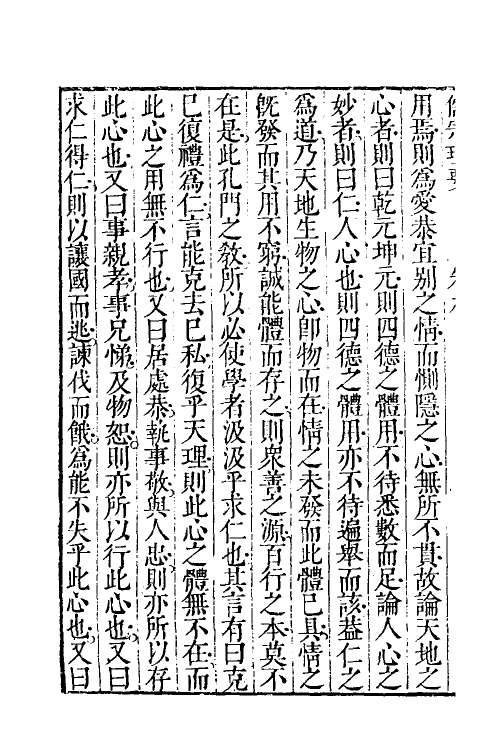 用焉則爲愛恭宜别之情而惻隱之心無所不貫故論天地之
心者則曰乾元坤元則四德之體用不待悉數而足論人心之
妙者則曰仁人心也則四德之體用亦不待遍舉而該葢仁之
爲道乃天地生物之心卽物而在情之未發而此體已具情之
旣發而其用不窮誠能體而存之則衆善之源百行之本莫不
在是此孔門之敎所以必使學者汲汲乎求仁也其言有曰克
已復禮爲仁言能克去已私復乎天理則此心之體無不在而
此心之用無不行也又曰居處恭執事敬與人忠則亦所以存
此心也又曰事親孝事兄悌及物恕則亦所以行此心也又曰
求仁得仁則以讓國而逃諫伐而餓爲能不失乎此心也又曰